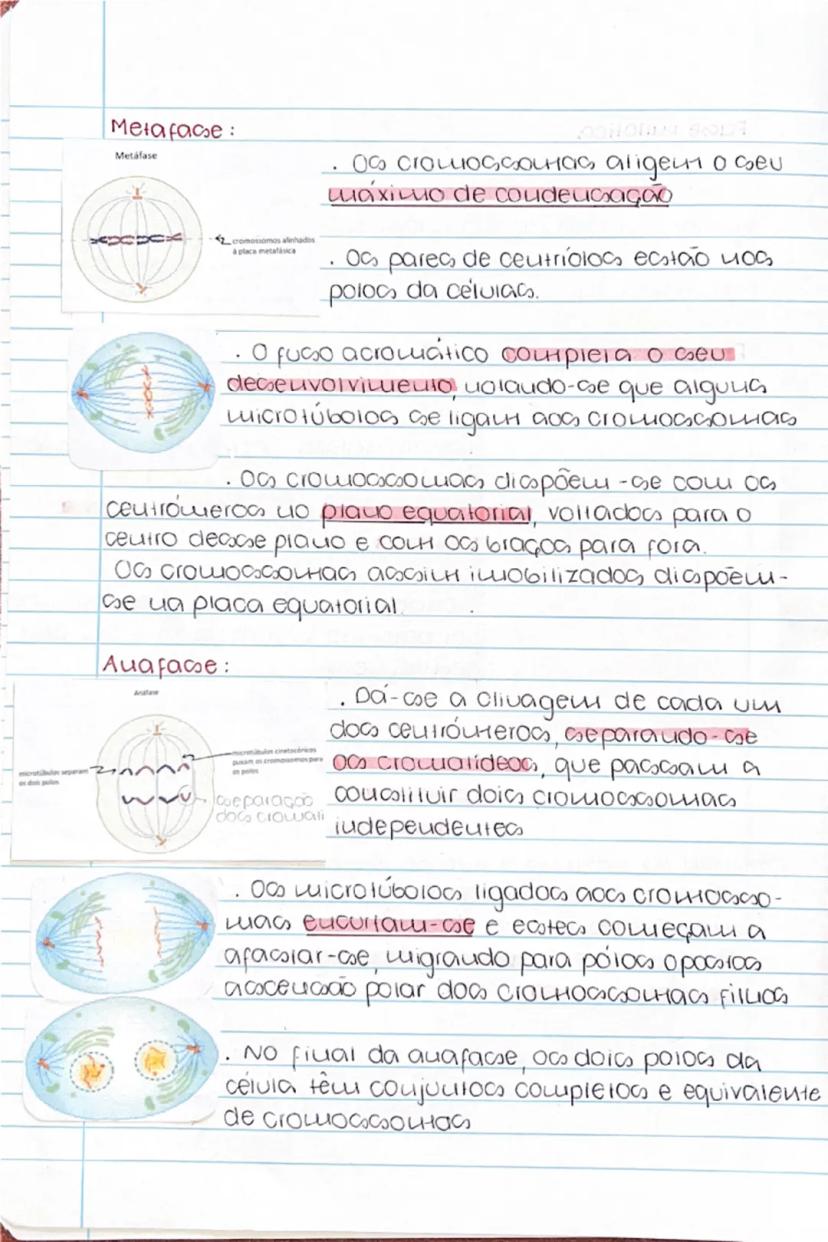 Metafase:
Metáfase
cromossomos alinhados
à placa metafásica
. Os cromossomas atigem o seu
máximo de condensação
. Os pares de centríolos estão nos
polos da células.
. O fuso acromático completa o seu
desenvolvimento, notando-se que alguns
microtúbolos se ligam aos cromossomas
. Os cromossomas dispõem-se com os
centrómeros no plano equatorial, voltados para o
centro desse plano e com os braços para fora.
Os cromossomas assim imobilizados dispõem-
se na placa equatorial.
Anafase:
Anáfase
microtúbulos cinetocóricos
puxam os cromossomos para
os polos
microtúbulos separam
os dois polos
separação
dos cromatí
. Dá-se a clivagem de cada um
dos centrómeros, separando-se
os cromatídeos, que passam a
constituir dois cromossomas
independentes
. Os microtúbolos ligados aos cromosso-
mas encurtam-se e estes começam a
afastar-se, migrando para pólos opostos
ascensão polar dos cromossomas filhos
. No final da anafase, os dois polos da
célula têm conjuntos completos e equivalente
de cromossomas